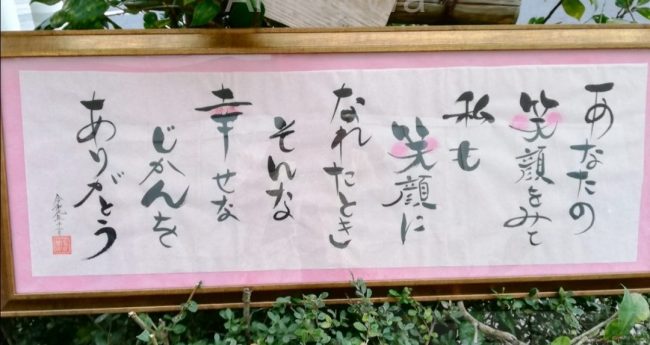 あなたの
笑顔をみて
私も
笑顔に
なれたとき
そんな
幸せな
じかんを
ありがとう